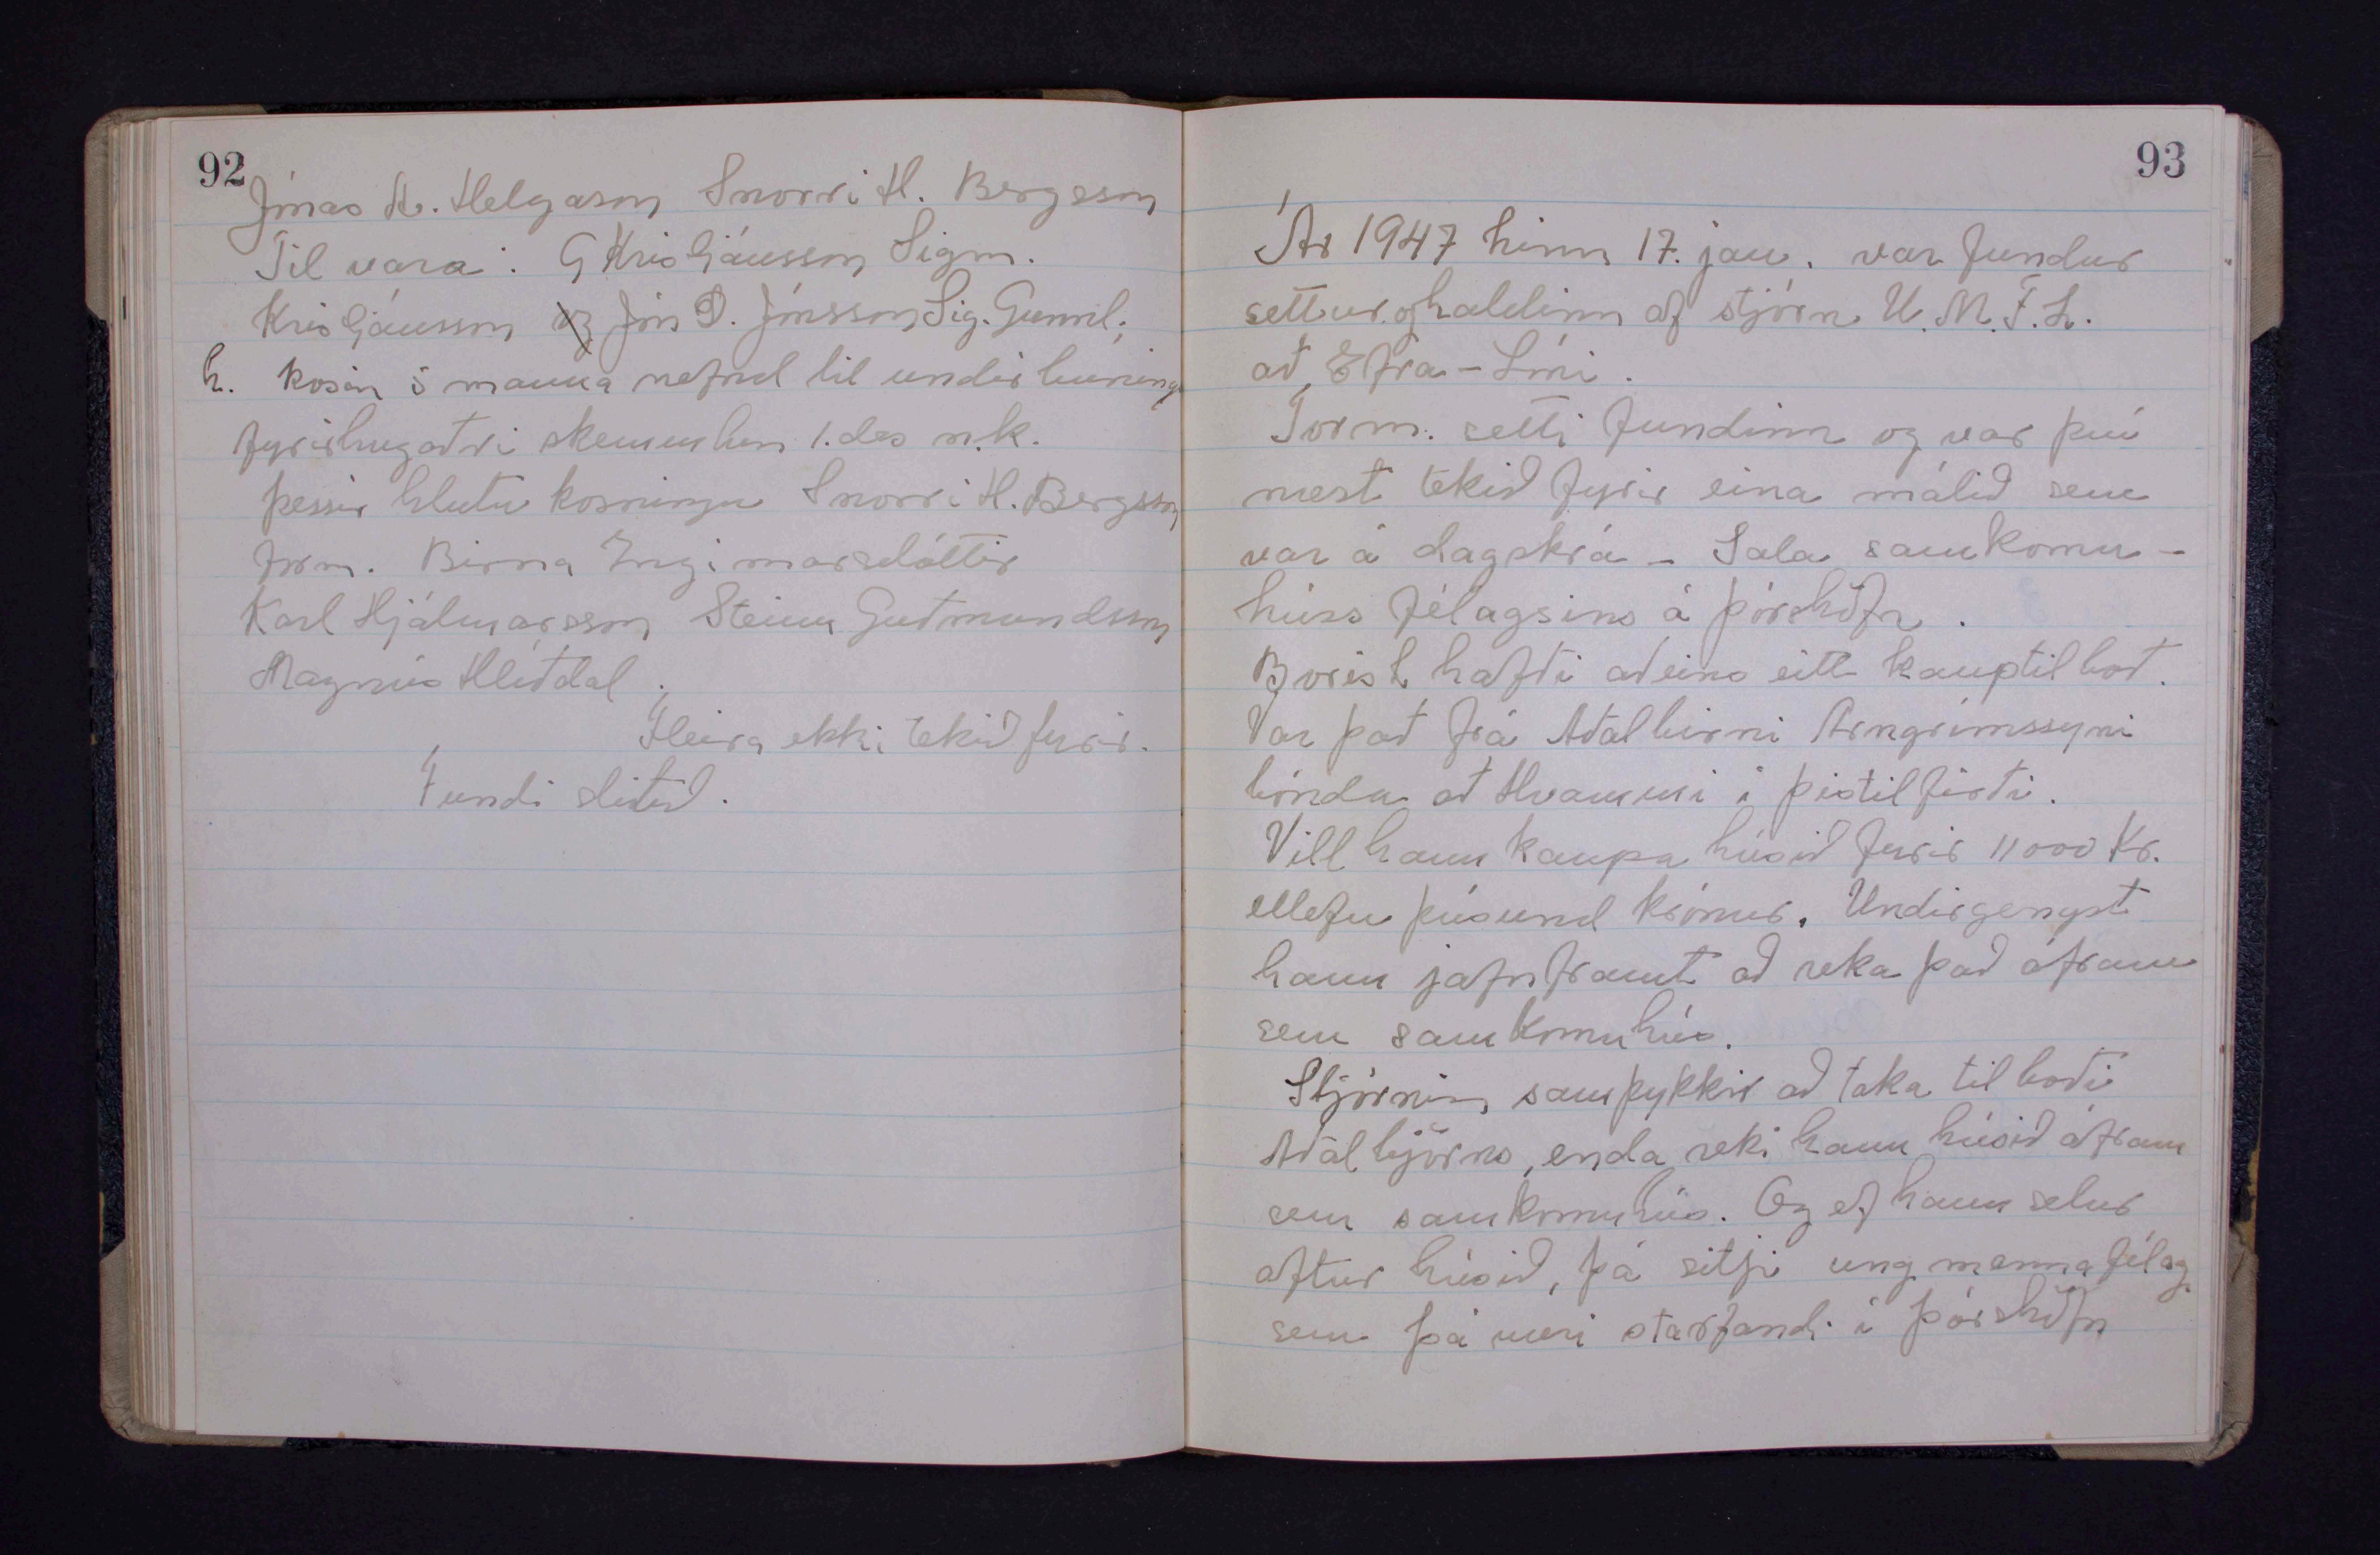 92
Jónas A. Helgason Snorri H. Bergsson
Til vara: G Kristjánsson Sigm.
Kristjánsson og Jón D. Jónsson Sig. Gunnl.;
h. kosin 5 manna nefnd til undirbúnings
fyrirhugaðri skemmtun 1. des n.k.
þessir hlutu kosningu Snorri H. Bergsson
form. Birna Ingimarsdóttir
Karl Hjálmarsson Steinn Guðmundsson
Magnús Hlíðdal;
Fleira ekki tekið fyrir.
Fundi slitið.
93
Ár 1947 hinn 17. jan. var fundur
settur og haldinn af stjórn U.M.F.L.
að Efra-Lóni.
Form. setti fundinn og var því
næst tekið fyrir eina málið sem
var á dagskrá - Sala samkomu-
húss félagsins á þórshöfn.
Fyrir lá hafði aðeins eitt kauptilboð.
Var það frá Aðalbirni Arngrímssyni
bónda að Hvammi í þistilfirði.
Vill hann kaupa húsið fyrir 11000 Kr.
ellefu þúsund krónur. Undirgengst
hann jafnframt að reka það áfram
sem samkomuhús.
Stjórnin samþykkir að taka tilboði
Aðalbjörns, enda reki hann húsið áfram
sem samkomuhús. Og ef hann selur
aftur húsið, þá sitji ungmennafélag
sem þá væri starfandi í þórshöfn